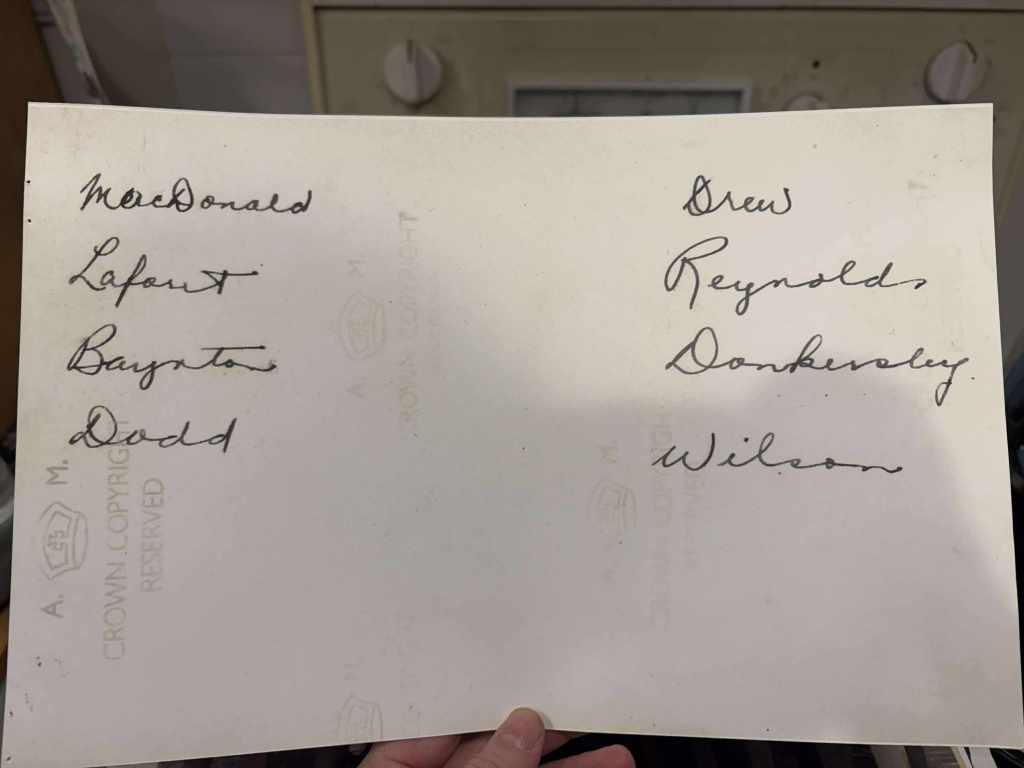 MacDonald
Lafont
Baynton
Dodd
Drew
Reynolds
Donkersley
Wilson
A. M.
CROWN COPYRIGHT
RESERVED
A. M.
CROWN COPYRIGHT
A. M.
CROWN COPYRIGHT
RESERVED
M.